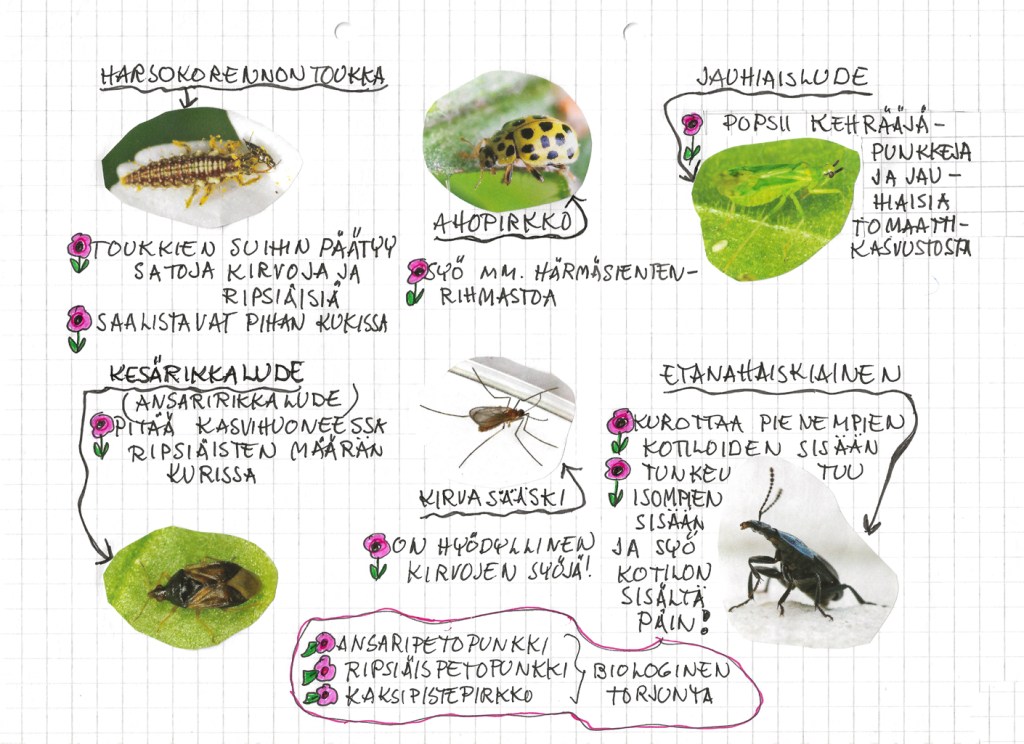 HARSOKORENNON TOUKKA
TOUKKIEN SUIHIN PÄÄTYY
SATOJA KIRVOJA JA
RIPSIÄISIÄ
SAALISTAVAT PIHAN KUKISSA
AHOPIRKKO
SYÖ MM. HÄRMÄSIENTEN-
RIHMASTOA
JAUHIAISLUDE
POPSII KEHRÄÄJÄ-
PUNKKEJA
JA JAU-
HIAISIA
TOMAATTI-
KASVUSTOSTA
KESÄRIKKALUDE
(ANSARIRIKKALUDE)
PITÄÄ KASVIHUONEESSA
RIPSIÄISTEN MÄÄRÄN
KURISSA
KIRVASÄÄSKI
ON HYÖDYLLINEN
KIRVOJEN SYÖJÄ!
ETANAHAISKIAINEN
KUROTTAA PIENEMPIEN
KOTILOIDEN SISÄÄN
TUNKEU TUU
ISOMPIEN
SISÄÄN
JA SYÖ
KOTILON
SISÄLTÄ
PÄIN!
ANSARIPETOPUNKKI
RIPSIÄISPETOPUNKKI
KAKSIPISTEPIRKKO
BIOLOGINEN
TORJUNTA